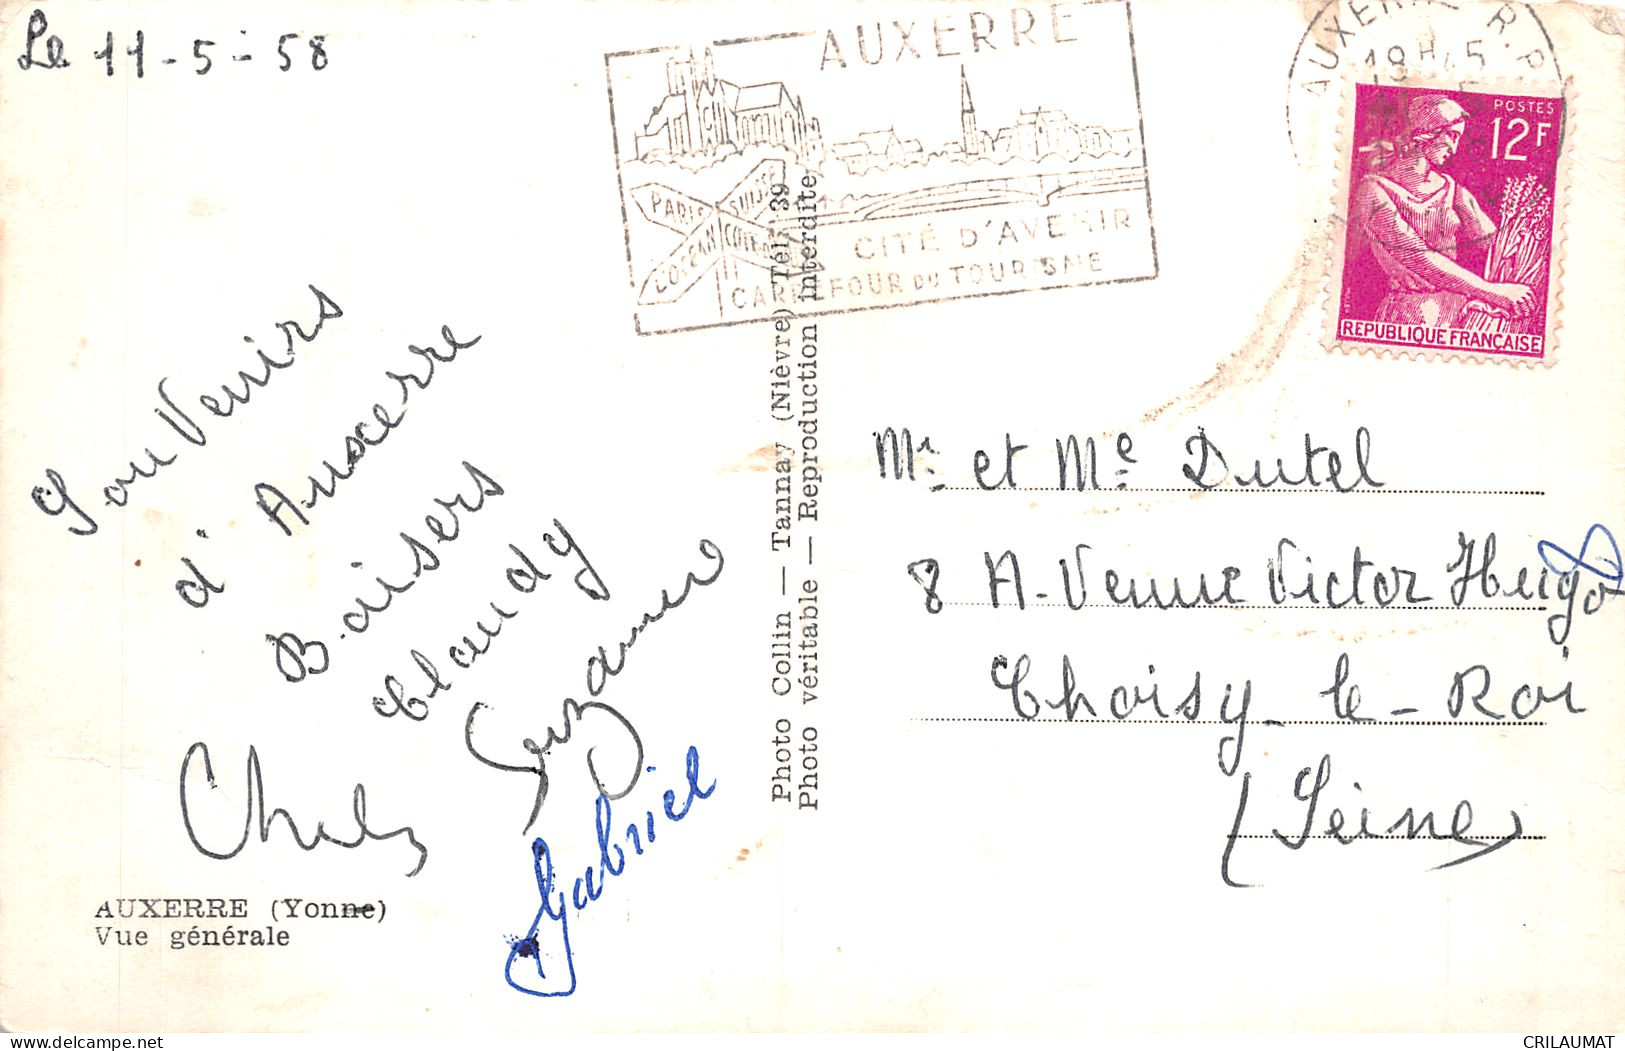 Le 11-5-58
AUXERRE
PARIS
SUISSE
L'OCEAN
CITÉ D'AVENIR
CARREFOUR DU TOURISME
AUXERRE R.P.
19H45
POSTES
12F
REPUBLIQUE FRANÇAISE
SouVenirs
d'Auxerre
Baisers
Claudy
Suzanne
Gabriel
AUXERRE (Yonne)
Vue générale
Photo Collin — Tannay (Nièvre) Tél. 39
Photo véritable — Reproduction interdite
Mr. et Me Dutel
8 A-Venue Victor Hugo
Choisy-le-Roi
(Seine)
CRILAUMAT